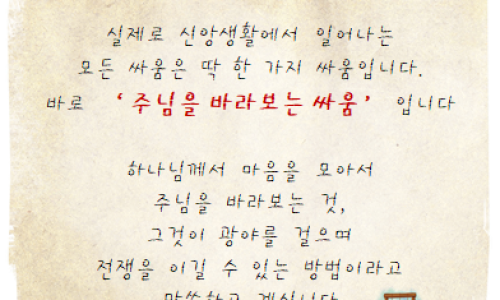 실제로 신앙생활에서 일어나는
모든 싸움은 딱 한 가지 싸움입니다.
바로 ‘주님을 바라보는 싸움’ 입니다
하나님께서 마음을 모아서
주님을 바라보는 것,
그것이 광야를 걸으며
전쟁을 이길 수 있는 방법이라고
말씀하고 계십니다